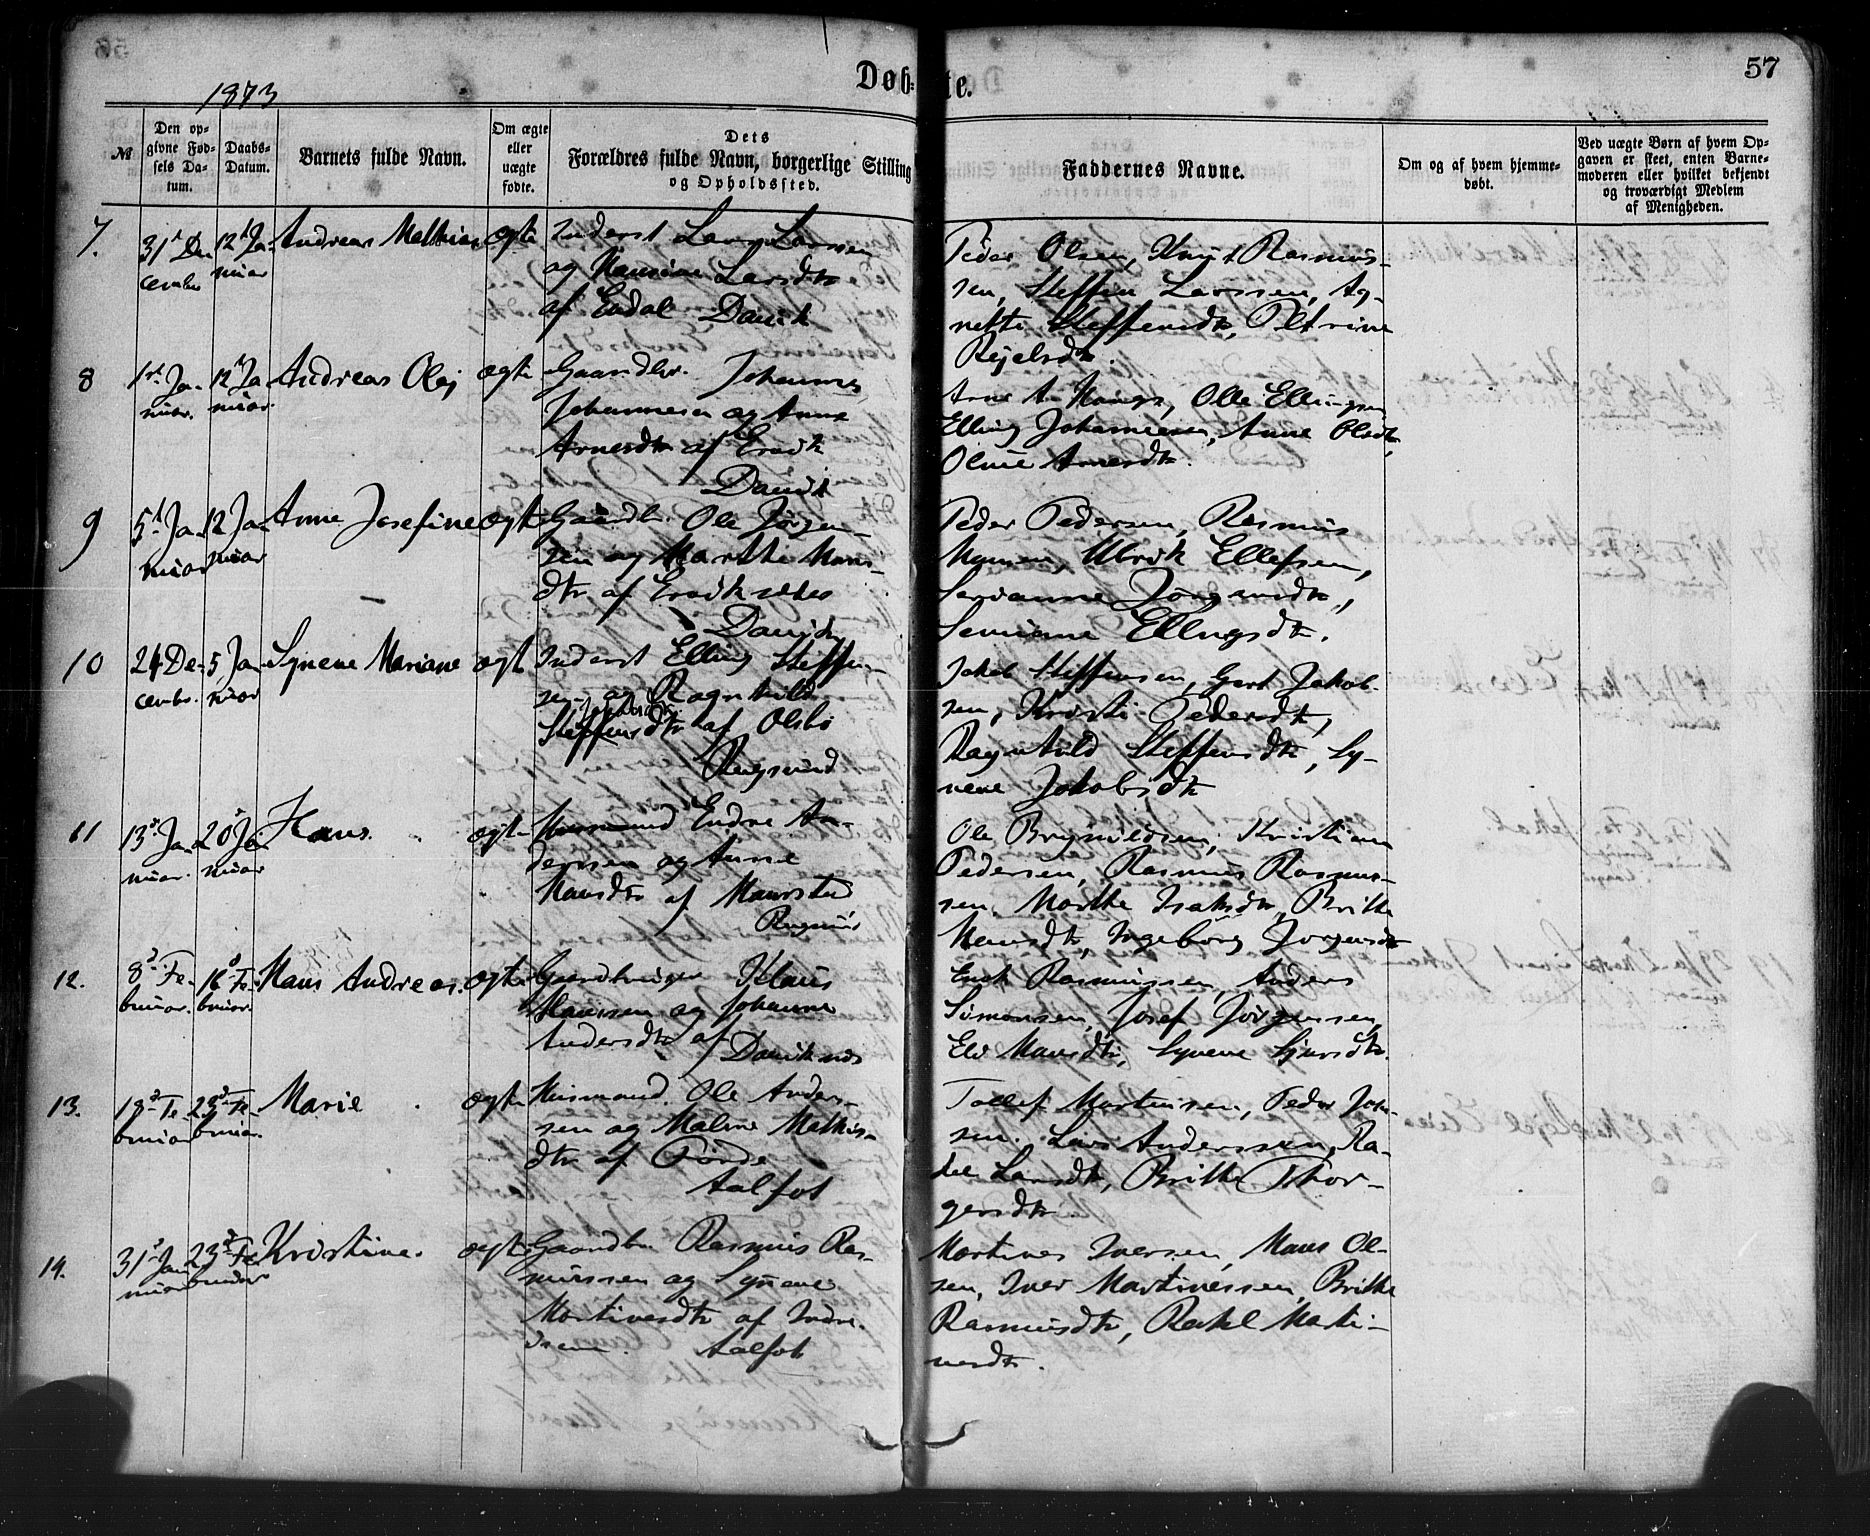 57
1873
Døbte.
№
Den opgivne Fødsels Datum.
Daabs-Datum.
Barnets fulde Navn.
Om ægte eller uægte fødte.
Dets Forældres fulde Navn, borgerlige Stilling og Opholdssted.
Faddernes Navne.
Om og af hvem hjemmedøbt.
Ved uægte Børn af hvem Opgaven er skeet, enten Barnemoderen eller hvilket bekjendt og troværdigt Medlem af Menigheden.
7.
31 December
12 Januar
Andreas Mathias
ægte
Inderst Lars Larssen
og Hansine Larsdtr
af Endal Davik
Peder Olsen, Knut Rasmus-
sen, Steffen Larssen, Ag-
nethe Steffensdtr, Petrine
8
1st Januar.
12 Januar.
Andreas Olej
ægte
Gaardbr. Johannes
Johannesen og Anne
Arnesdtr af
Davik
Arne A. Hauge, Olle Ellingsen
Elling Johannesen, Anne Olsdtr,
Oline Arnesdtr.
9
5 Januar
12 Januar
Anne Josefine
ægte
Gaardbr. Ole Jørgen-
sen og Marthe Hans-
dtr. af Eriksæter
Davik
Peder Pedersen, Rasmus
Hansen, Ulrik Ellefsen,
Serianne Jørgensdtr,
Ellingsdtr.
10
24 December.
5 Januar
Synene Mariane
ægte
Inderst Elling Steffen-
sen og Ragnhild
Steffensdtr af Olsbø
Rugsund
Jakob Steffensen, Gert Jakob-
sen, Kristi Pedersdtr,
Ragnhild Steffensdtr, Sy-
nene Jakobsdtr
11
13 Januar.
20 Januar
Hans.
ægte
Husmand Endre An-
dersen og Anne
Hansdtr af Maurstad
Rugsund
Ole Brynildsen, Kristian
Pedersen, Rasmus Rasmus-
sen, Marthe Isaksdtr, Brithe
Hansdtr, Ingeborg Jørgensdtr
12.
8 Februar.
16 Februar.
Hans Andreas.
ægte
Gaardbruger Klaus
Hansen og Johanne
Andersdtr af
Daviknes
Enok Rasmussen, Anders
Simonsen, Josef Jørgensen,
Eli Hansdtr, Synene Sjursdtr.
13.
18 Februar
23 Februar.
Marie
ægte
Husmand. Ole Ander-
sen og Maline Mathis-
dtr af Førde
Aalfot
Tollef Martinsen, Peder Jon-
sen. Lars Anderssen, Ra-
kel Larsdtr, Brithe Thor-
gersdtr.
14.
31 Januar
23 Februar
Kristine.
ægte
Gaardbr. Rasmus Ras-
mussen og Synene
Martinesdtr af Indre-
Aalfot
Martines Iversen, Hans Ol-
sen, Iver Martinessen, Brithe
Rasmusdtr, Rakel Marti-
nesdtr.